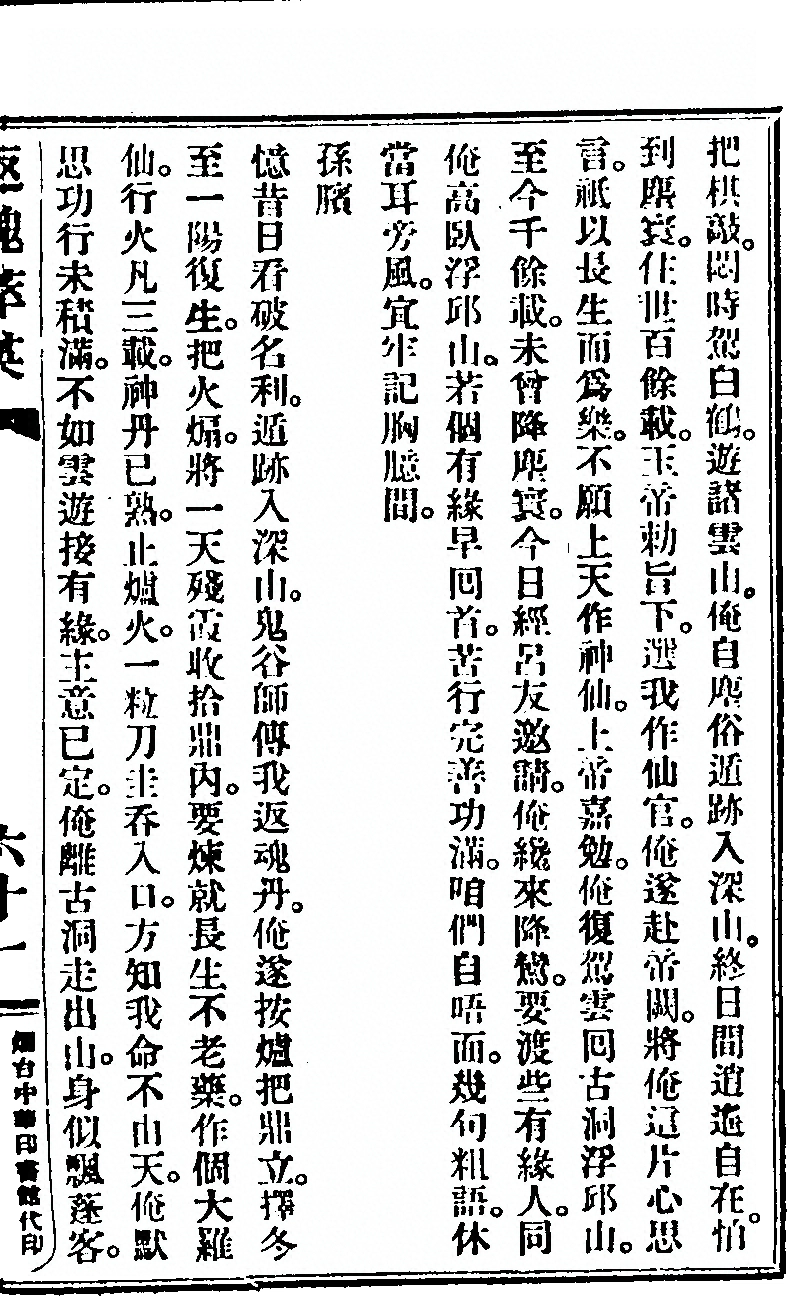 把棋敲。悶時駕白鶴。遊諸雲山。俺自塵俗遁跡入深山。終日間逍遙自在。怕
到塵寰。住世百餘載。玉帝勅旨下。選我作仙官。俺遂赴帝闕。將俺這片心思
言。祇以長生而為樂。不願上天作神仙。上帝嘉勉。俺復駕雲回古洞浮邱山。
至今千餘載。未曾降塵寰。今日經呂友邀請。俺纔來降鸞。要渡些有緣人。同
俺高臥浮邱山。若個有緣早回首。苦行完善功滿。咱們自唔面。幾句粗語。休
當耳旁風。宜牢記胸臆間。
孫臏
憶昔日看破名利。遁跡入深山。鬼谷師傳我返魂丹。俺遂按爐把鼎立。擇冬
至一陽復生。把火煽。將一天殘霞收拾鼎內。要煉就長生不老藥。作個大羅
仙。行火凡三載。神丹已熟。止爐火。一粒刀圭吞入口。方知我命不由天。俺默
思功行未積滿。不如雲遊接有緣。主意已定。俺離古洞走出山。身似飄蓬客。
六十一
烟台中華印書館代印